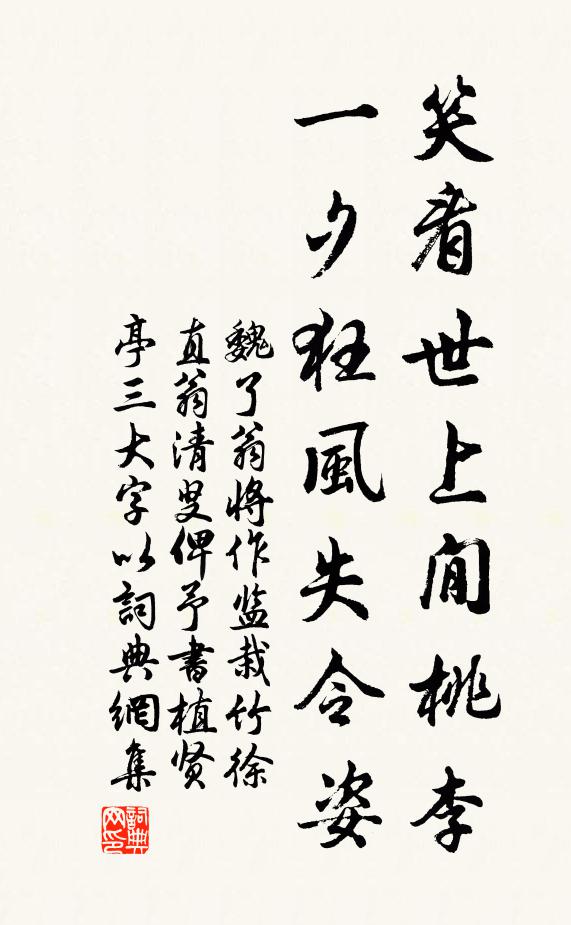 笑看世上閒桃李
一夕狂風失令姿
魏了翁將作監栽竹徐
直翁清叟俾予書植贤
亭三大字以詞典網集
詞典
网印